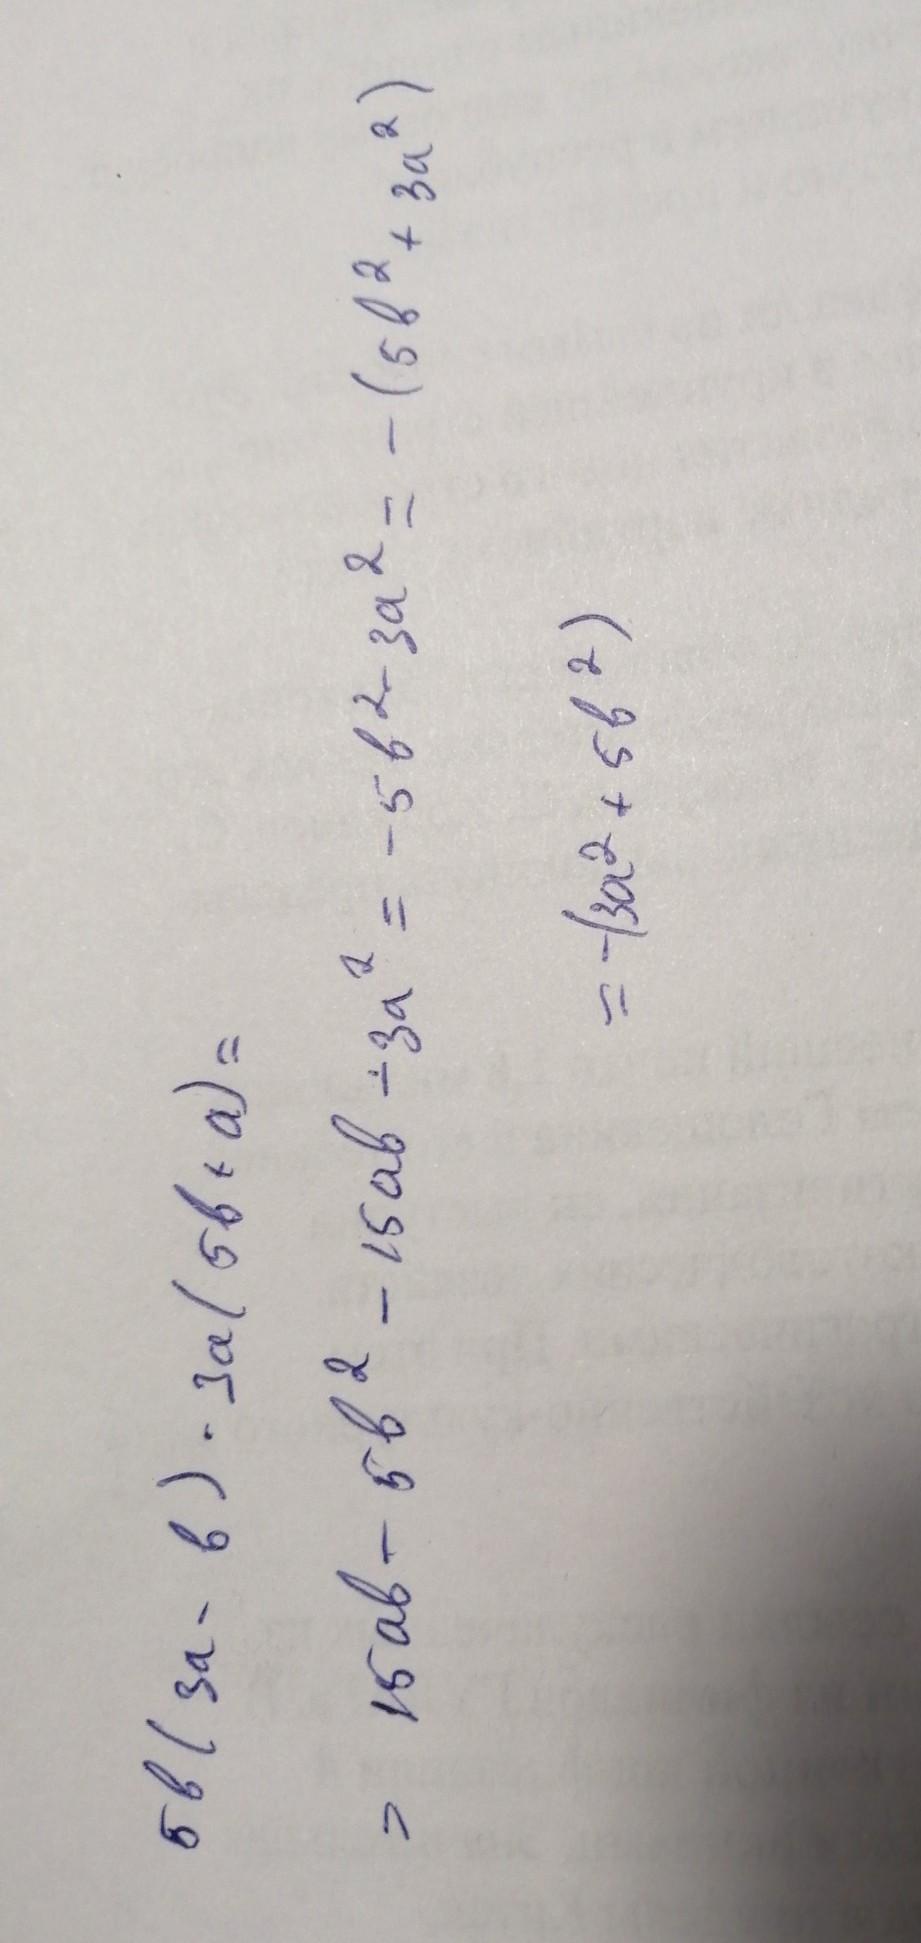 5b(3a - b) - 3a(5b + a) =
= 15ab - 5b² - 15ab - 3a² = -5b² - 3a² = -(5b² + 3a²)
= -(3a² + 5b²)